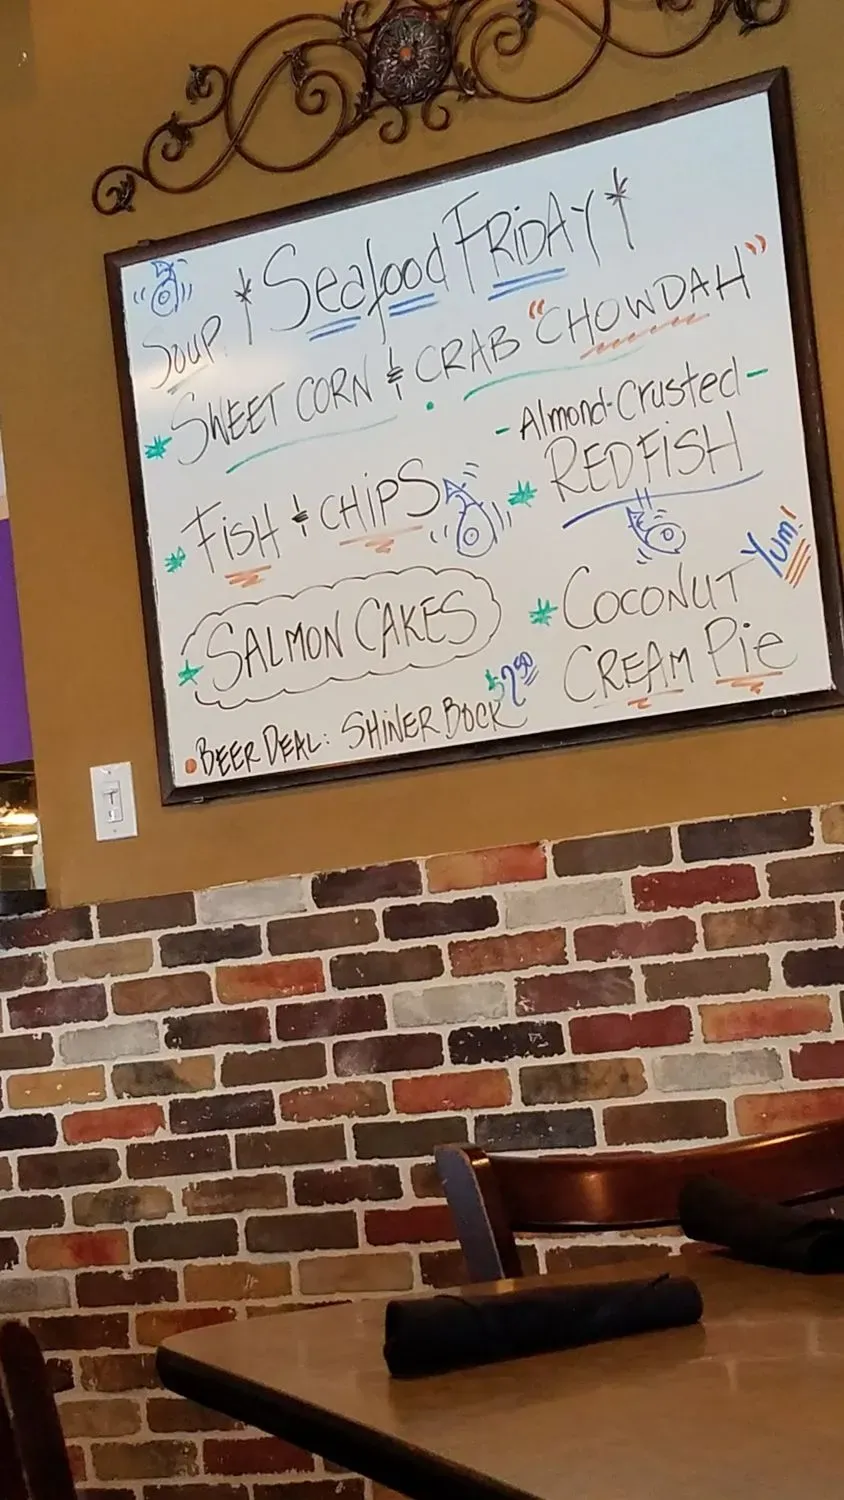 * Seafood FRiDAY *
Soup:
* SWEET CORN & CRAB "CHOWDAH"
* FiSH & CHiPS
- Almond-Crusted -
* REDFiSH
* SALMON CAKES
* COCONUT
CREAM Pie
Yum!
• BEER DEAL: SHiNER BOCK $2.50